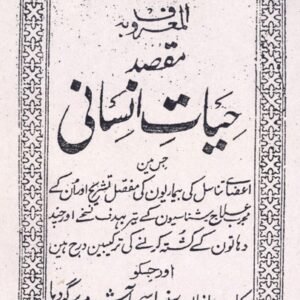 المعروف بہ
مقصد
حیاتِ انسانی
جس مین
اعضائے تناسل کی بیماریون کی مفصل تشریح اور اُن کے
مجرب علاج
کے تیر بہدف نسخے اور چند
دہاتون کے کُشتہ کرنے کی ترکیبین درج ہین
اور جسکو